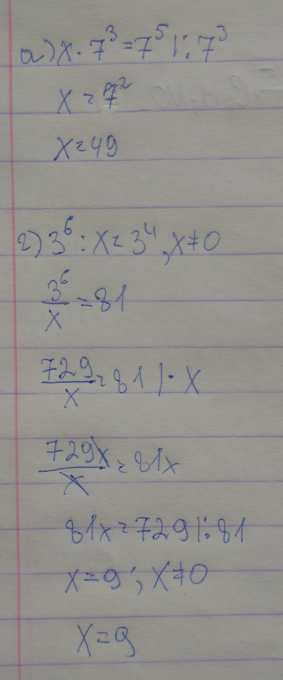 а) x · 7³ = 7⁵ |: 7³
x = 7²
x = 49
г) 3⁶ : x = 3⁴, x ≠ 0
3⁶/x = 81
729/x = 81 | · x
729x/x = 81x
81x = 729 |: 81
x = 9; x ≠ 0
x = 9